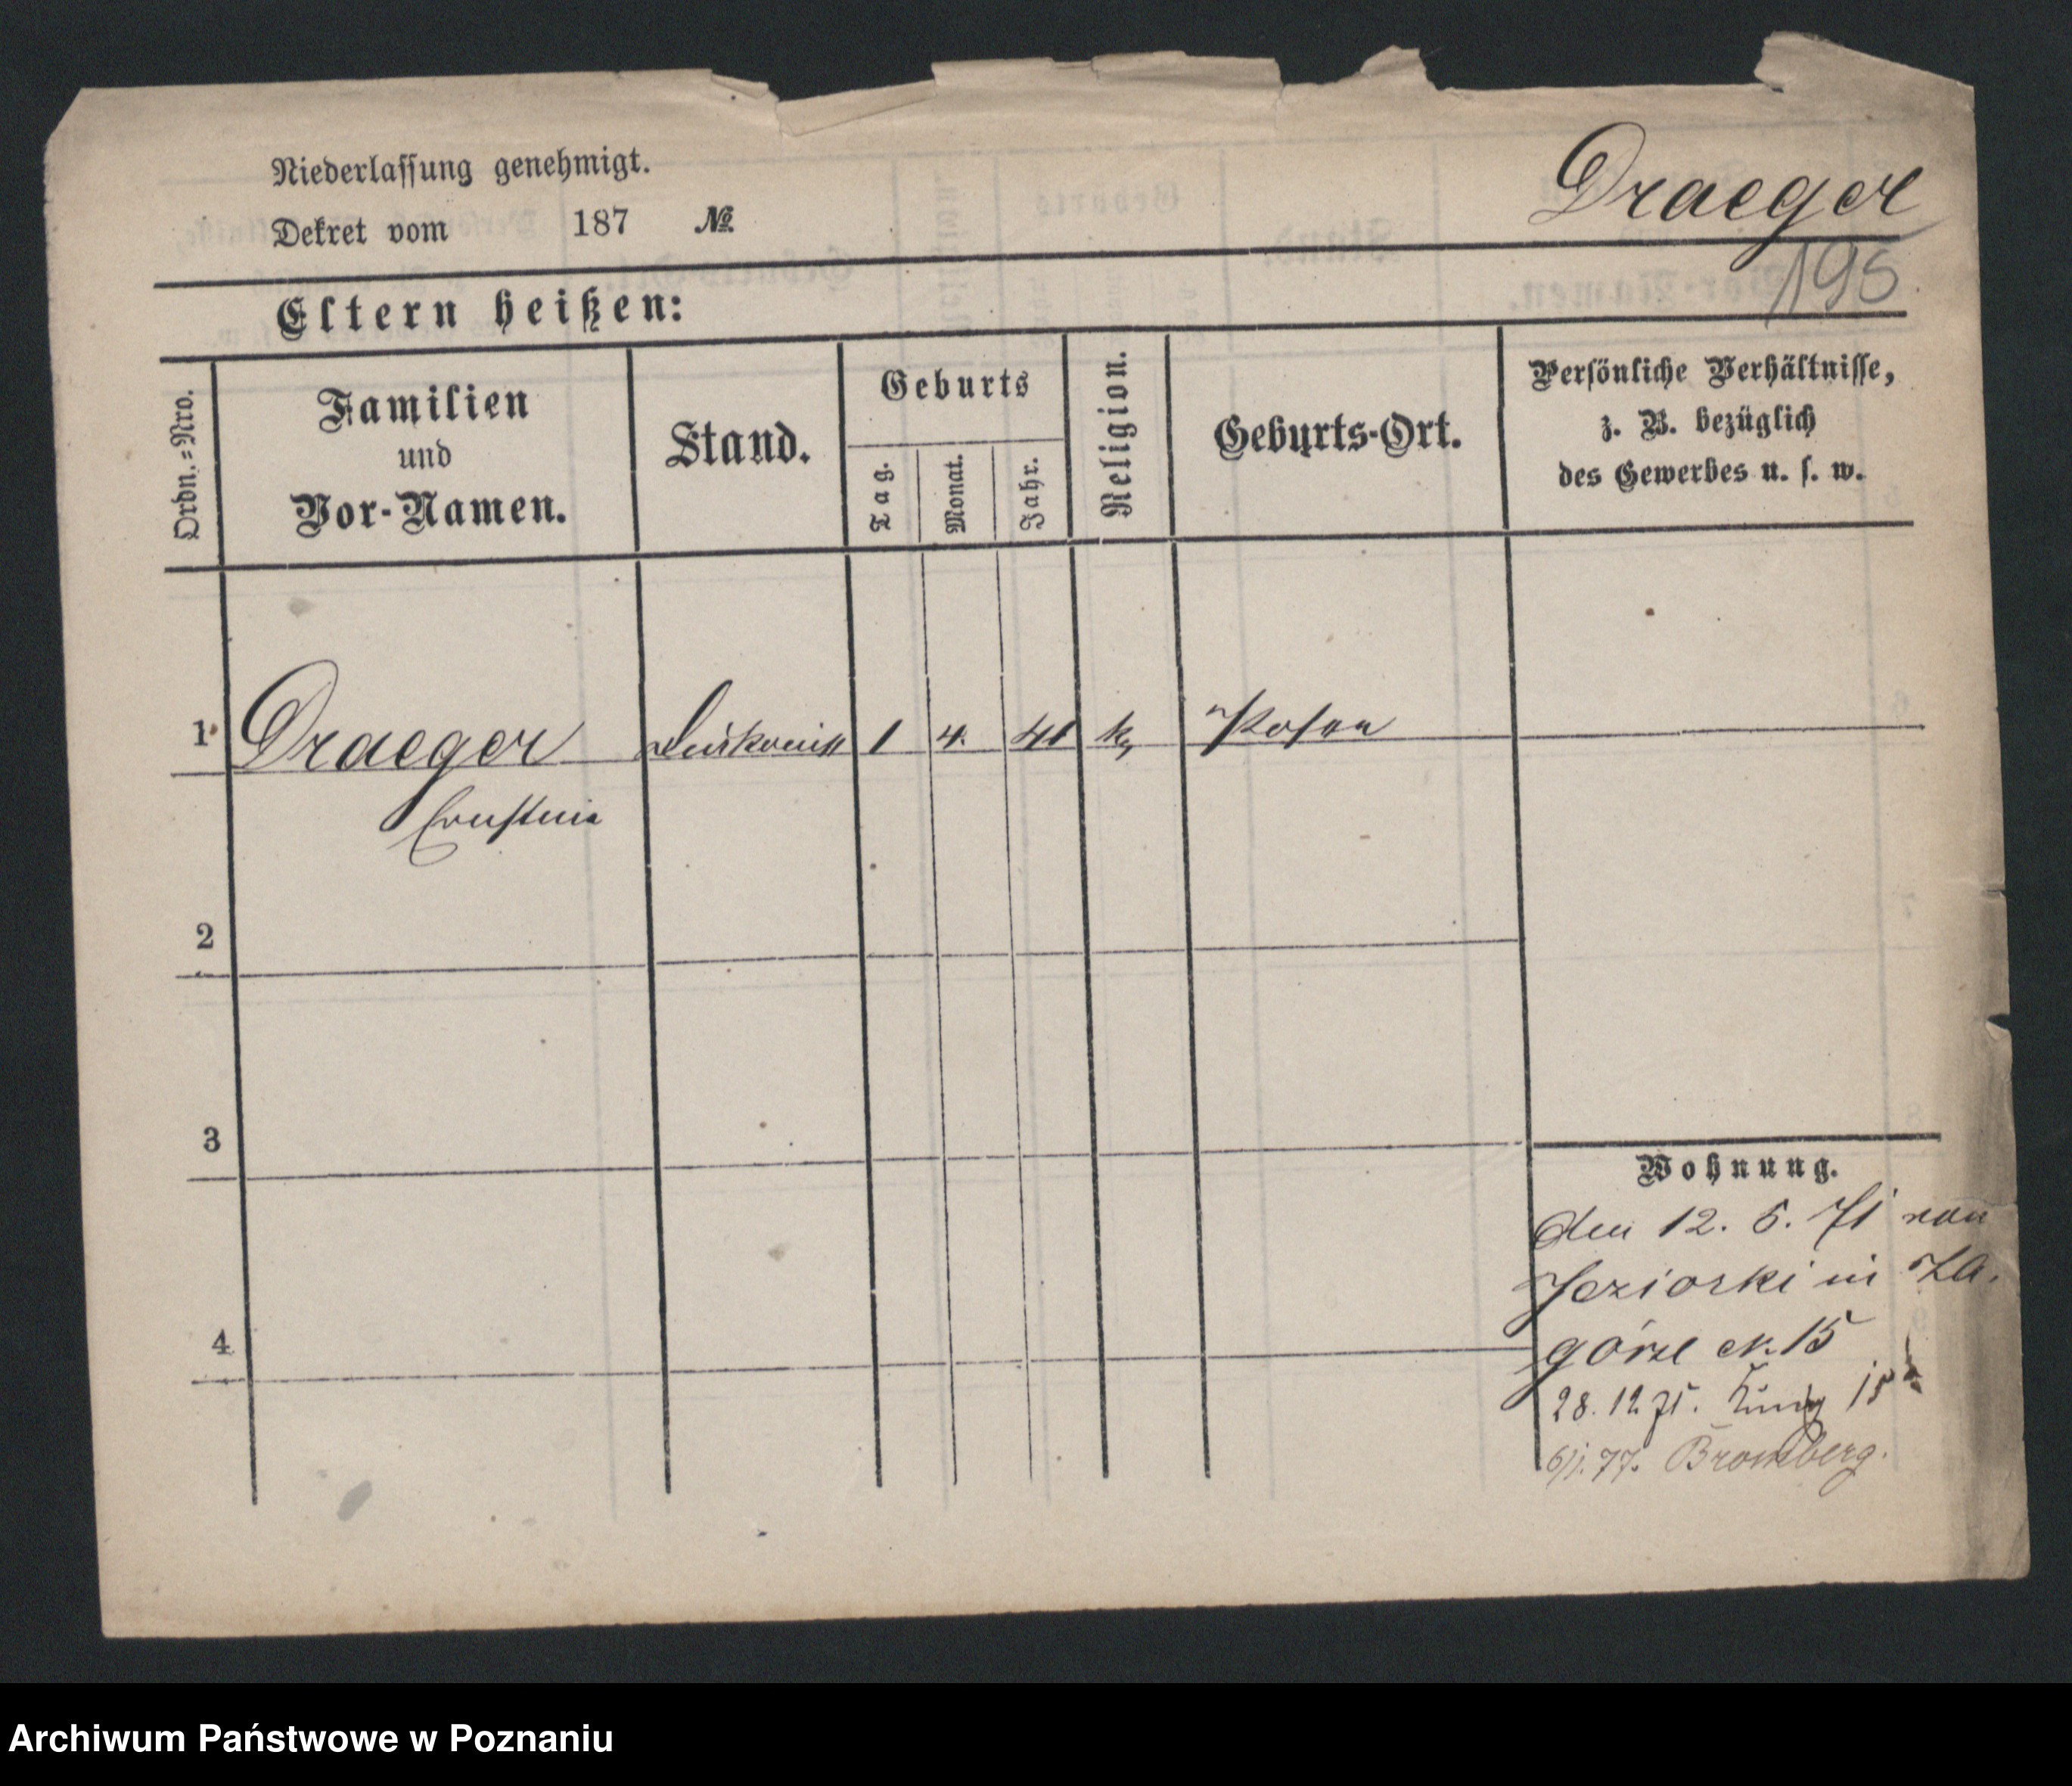 Niederlassung genehmigt.
Dekret vom 187 №
Draeger
195
Eltern heißen:
Ordn.=Nro.
Familien
und
Vor-Namen.
Stand.
Geburts
Tag.
Monat.
Jahr.
Religion.
Geburts-Ort.
Persönliche Verhältnisse,
z. B. bezüglich
des Gewerbes u. s. w.
1 Draeger 1 4. 41 k. Posen
Ernstine
2
3
4
Wohnung.
den 12. 5. 71 von
Jeziorski in Za.
górze N. 15
28. 12 71. 15
6/1. 77. Bromberg.
Archiwum Państwowe w Poznaniu